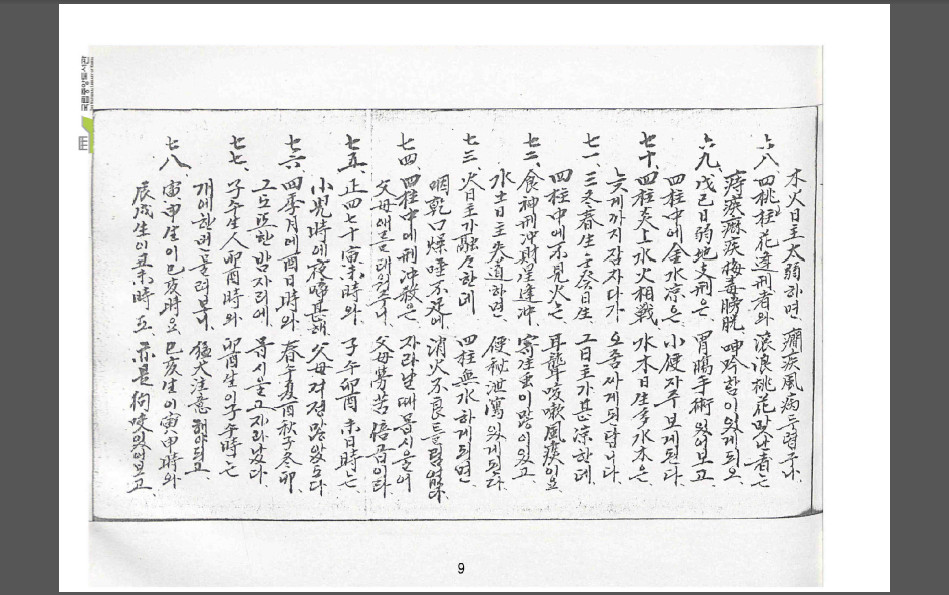 木火日主太弱하면 癎疾風病두렵구나
六八、四柱桃花逢刑者와 滾浪桃花맞난者는
痔疾痳疾梅毒膀胱 呻吟함이있게되오
六九、戊己日弱地支刑은 胃腸手術있어보고
四柱中에金水凉은 小便자주보게된다
七十、四柱炎上水火相戰 水木日生多水木은
늦게까지잠자다가 오줌싸게된답니다
七一、三冬春生壬癸日生 그日主가甚凉한데
四柱中에不見火는 耳聾咳嗽風疾이요
七二、食神刑冲財星逢冲 寄生虫이많이있고
水土日主太過하면 便秘泄瀉있게된다
七三、火日主가融々한데 四柱無水하게되면
咽乾口燥唾不足에 消火不良틀림없다
七四、四柱中에刑冲殺은 자라날때몹시울어
父母애를태워주니 父母勞苦倍곱이라
七五、正四七十寅未時와 子午卯酉未日時는
小兒時에夜啼甚해 父母걱정많았도다
七六、四季月에酉日時와 春午夏酉秋子冬卯
그도또한밤자리에 몹시울고자라났다
七七、子午生人卯酉時와 卯酉生이子午時는
개에한번물려보니 猛犬注意해야되고
七八、寅申生이巳亥時요 巳亥生이寅申時와
辰戌生이丑未時도 亦是狗咬있어보고
9